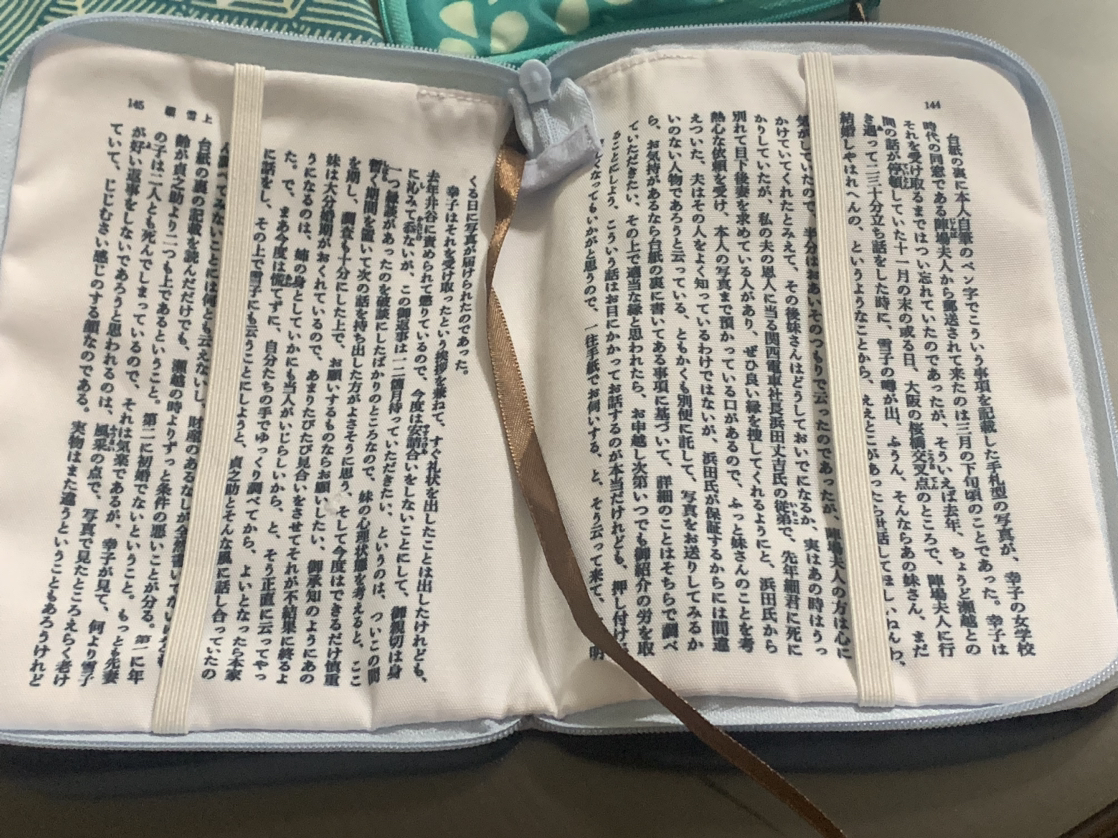 144
台紙の裏に本人自筆のペン字でこういう事項を記載した手札型の写真が、幸子の女学校
時代の同窓である陣場夫人から郵送されて来たのは三月の下旬頃のことであった。幸子は
それを受け取るまではつい忘れていたのであったが、そういえば去年、ちょうど瀬越との
間の話が停頓していた十一月の末の或る日、大阪の桜橋交叉点のところで、陣場夫人に行
き遇って二三十分立ち話をした時に、雪子の噂が出、ふうん、そんならあの妹さん、まだ
結婚しやはれへんの、というようなことから、ええとこがあったら世話してほしいねんわ、
半分はおあいそのつもりで云ったのであったが、陣場夫人の方は心に
かけていてくれたとみえて、その後妹さんはどうしておいでになるか、実はあの時はうっ
かりしていたが、私の夫の恩人に当る関西電車社長浜田丈吉氏の従弟で、先年細君に死に
別れて目下後妻を求めている人があり、ぜひ良い縁を捜してくれるようにと、浜田氏から
熱心な依頼を受け、本人の写真まで預かっている口があるので、ふっと妹さんのことを考
えついた、夫はその人をよく知っているわけではないが、浜田氏が保証するからには間違
いのない人物であろうと云っている、ともかくも別便に託して、写真をお送りしてみるか
ら、お気持があるなら台紙の裏に書いてある事項に基づいて、詳細のことはそちらで調べ
ていただきたい、その上で適当な縁と思われたら、お申越し次第いつでも御紹介の労を取
ることにしよう、こういう話はお目にかかってお話するのが本当だけれども、押し付け
くなってもいかがと思うので、一往手紙でお伺いする、と、そう云って来て、明
くる日に写真が届けられたのであった。
幸子はそれを受け取ったという挨拶を兼ねて、すぐ礼状を出したことは出したけれども、
去年井谷に責められて懲りているので、今度は安請合いをしないことにして、御親切は身
に沁みて忝ないが、この御返事は一二箇月待っていただきたい、というのは、ついこの間
一つ縁談があったのを破談にしたばかりのところなので、妹の心理状態を考えると、ここ
暫く期間を置いて次の話を持ち出した方がよさそうに思う、そして今度はできるだけ慎重
を期し、調査も十分にした上で、お願いするものならお願いしたい、御承知のようにあの
妹は大分婚期がおくれているので、あまりたびたび見合いをさせてそれが不結果に終るよ
うになるのは、姉の身としていかにも当人がいじらしいから、と、そう正直に云ってやっ
た。で、まあ今度は慌てずに、自分たちの手でゆっくり調べてから、よいとなったら本家
に話をし、その上で雪子にも云うことにしようと、貞之助とそんな風に話し合っていたの
てみないことには何とも云えないし、財産のあるなしが全然書いてない
台紙の裏の記載を読んだだけでも、瀬越の時よりずっと条件の悪いことが分る。第一に年
齢が貞之助より二つも上であるということ。第二に初婚でないということ。もっとも先妻
の子は二人とも死んでしまっているので、それは気楽であるが、幸子が見て、何より雪子
が好い返事をしないであろうと思われるのは、風采の点で、写真で見たところえらく老け
ていて、じじむさい感じのする顔なのである。実物はまた違うということもあろうけれど
細雪 上
145